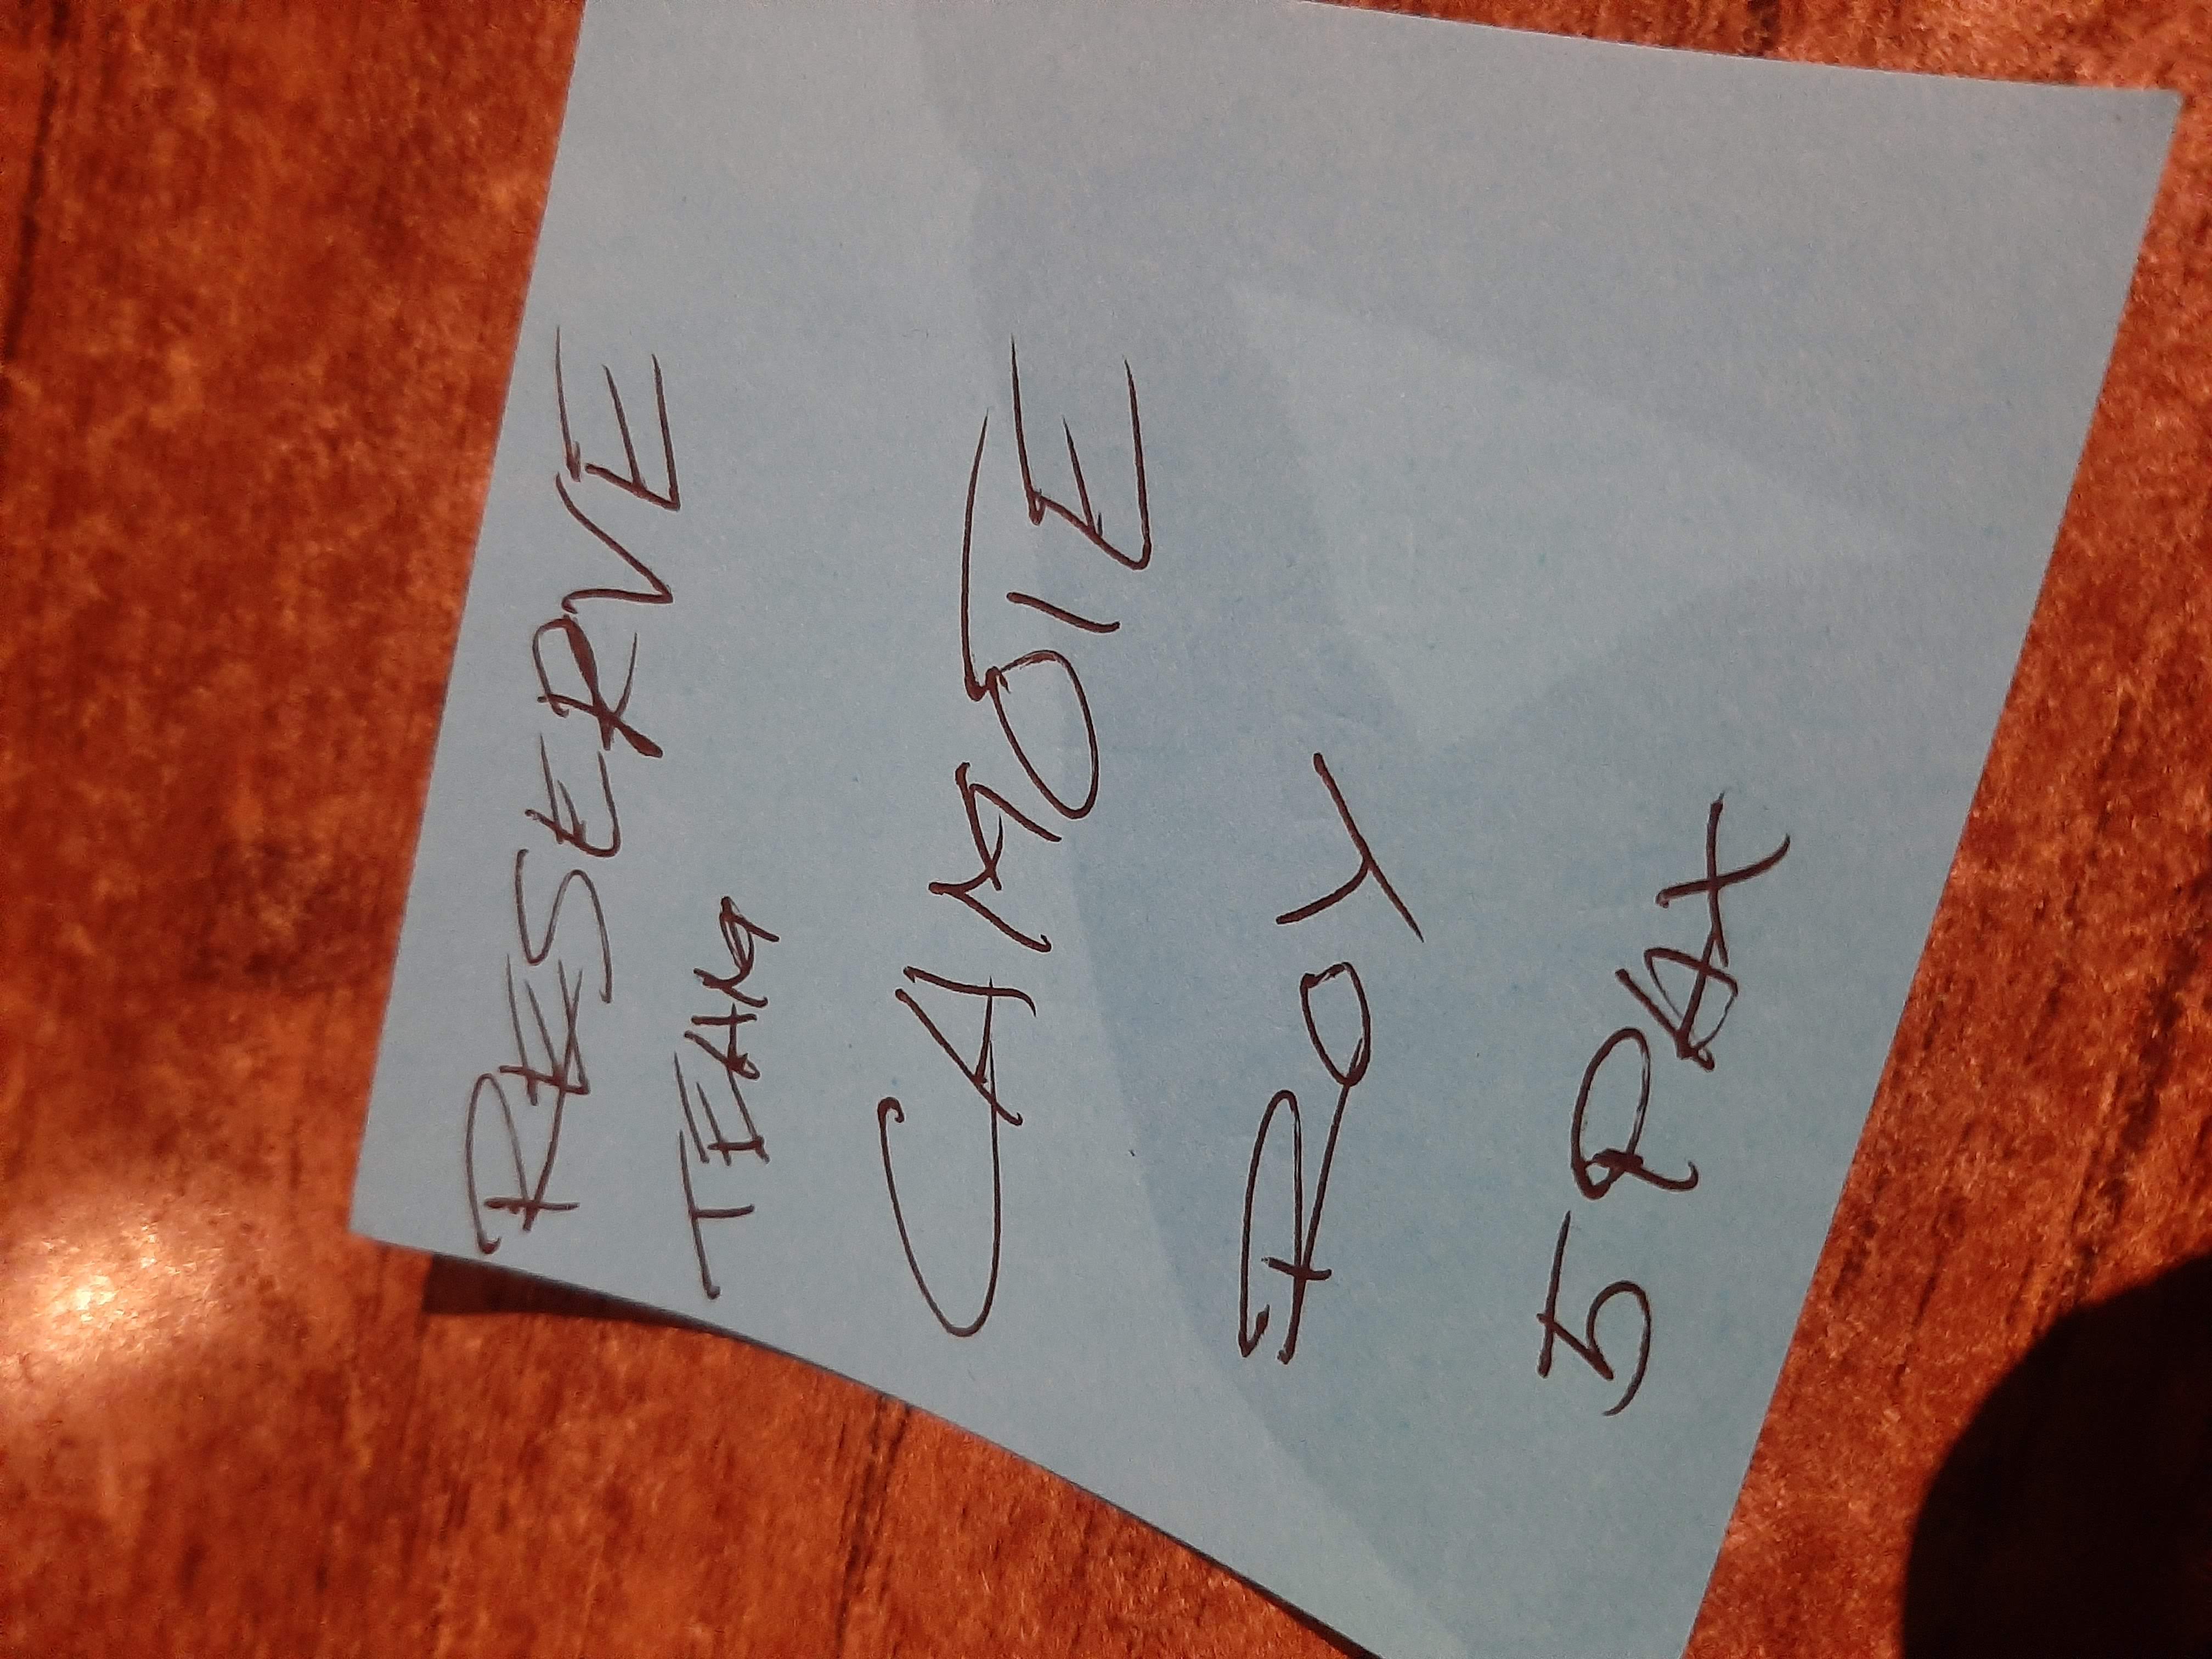 RESERVE
TEAM
CAMOTE
ROY
5 PAX